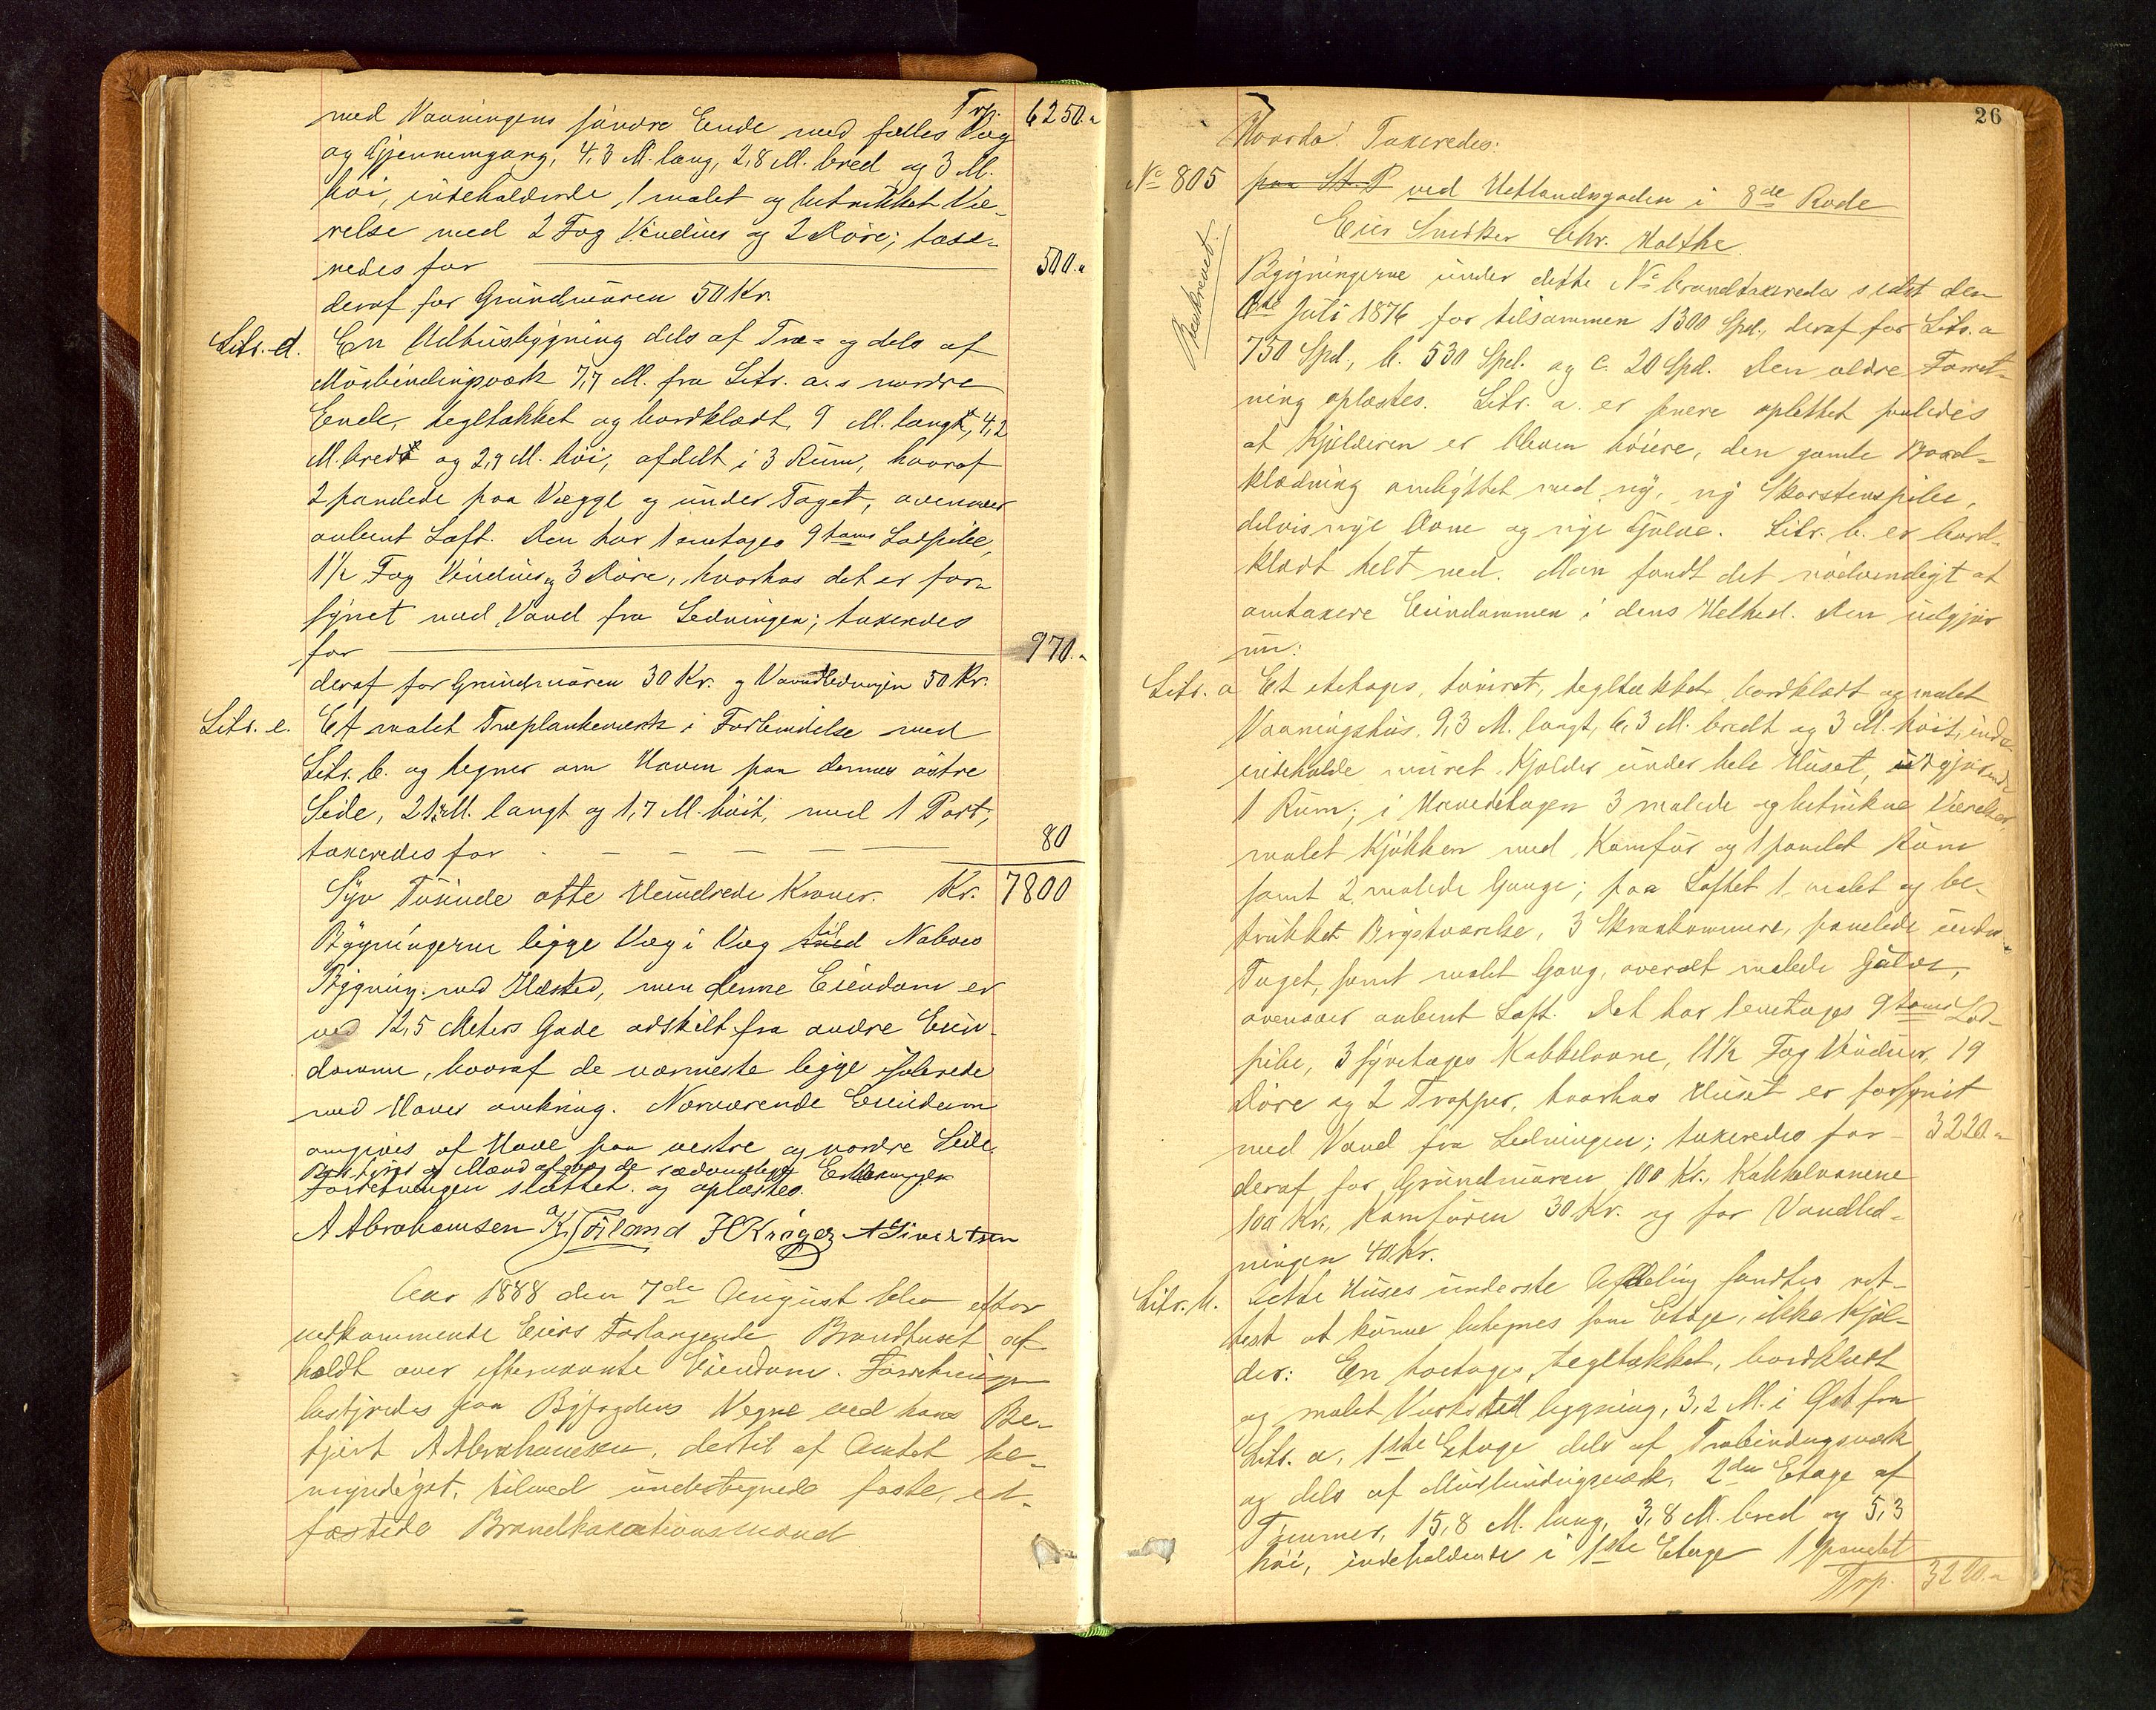 Trp. 6250."
med Vaaningens søndre Ende med fælles Væg
og Gjennemgang, 4,3 M. lang, 2,8 M. bred og 3 M.
høi, indeholdende 1 malet og betrukket Væ-
relse med 2 Fag Vinduer og 2 Døre; taxe-
redes for 500."
deraf for Grundmuren 50 Kr.
Litr. d. En Udhusbygning dels af Træ- og dels af
Murbindingsværk 7,7 M. fra Litr. a.s nordre
Ende, tegltækket og bordklædt, 9 M. langt, 4,2
M. bredt og 2,9 M. høi, afdelt i 3 Rum, hvoraf
2 panelede paa Vægge og under Taget, ovenover
aabent Loft. Den har 1 enetages 9 toms Lodpibe,
1½ Fag Vinduer og 3 Døre, hvorhos det er for-
synet med Vand fra Ledningen; taxeredes
for 970."
deraf for Grundmuren 30 Kr. og Vandledningen 50 Kr.
Litr. e. Et malet Træplankeværk i Forbindelse med
Litr. b. og hegner om Haven paa dennes østre
Side, 21 M. langt og 1,7 M. høit, med 1 Port;
taxeredes for 80
Syv Tusinde otte Hundrede Kroner. Kr. 7800
Bygningerne ligge Væg i Væg med Naboes
Bygning ved Ildsted, men denne Eiendom er
ved 12,5 Meters Gade adskilt fra andre Eien-
domme, hvoraf de nærmeste ligge isolerede
med Haver omkring. Nærværende Eiendom
omgives af Have paa vestre og nordre Side.
Bestyrer og Mænd afgav de sædvanlige Erklæringer
Forretningen sluttet og oplæstes.
A Abrahamsen K. Törland H Krøger A Sivertsen
Aar 1888 den 7de August blev efter
vedkommende Eiers Forlangende Brandtaxt af-
holdt over efternævnte Eiendom. Forretningen
bestyredes paa Byfogdens Vegne ved hans Be-
tjent A Abrahamsen, dertil af Amtet be-
myndiget, tilmed undertegnede faste, ed-
fæstede Brandtaxationsmænd
26
Hvorda! Taxeredes:
No 805 paa St. P ved Hetlandsgaden i 8de Rode
Eier Snedker Chr. Holthe.
Beskrevet.
Bygningerne under dette No brandtaxeredes sidst den
Juli 1876 for tilsammen 1300 Spd., deraf for Litr. a
750 Spd., b. 530 Spd. og c. 20 Spd. Den ældre Forret-
ning oplæstes. Litr. a. er senere opløftet saaledes
at Kjelderen er bleven høiere, den gamle Bord-
klædning ombyttet med ny, ny Skorstenspibe,
delvis nye Ovne og nye Gulve. Litr. b. er bord-
klædt helt ned. Man fandt det nødvendigt at
omtaxere Eiendommen i dens Helhed. Den udgjør
nu:
Litr. a Et etetages, tømret, tegltækket, bordklædt og malet
Vaaningshus, 9,3 M. langt, 6,3 M. bredt og 3 M. høit, inde-
indeholde muret Kjelder under hele Huset, udgjørende
1 Rum; i Hovedetagen 3 malede og betrukne Værelser,
malet Kjøkken med Komfur og 1 panelet Rum
samt 2 malede Gange; paa Loftet 1 malet og be-
trukket Brystværelse, 3 Skraakammere, panelede under
Taget, samt malet Gang, overalt malede Gulve,
ovenover aabent Loft. Det har 1 enetages 9 toms Lod-
pibe, 3 fyretages Kakkelovne, 11½ Fag Vinduer, 19
Døre og 2 Trapper, hvorhos Huset er forsynet
med Vand fra Ledningen; taxeredes for 3220."
deraf for Grundmuren 100 Kr., Kakkelovnene
100 Kr., Komfuren 30 Kr. og for Vandled-
ningen 40 Kr.
Litr. b. Dette Huses underste Afdeling fandtes ret-
test at kunne betegnes som Etage, ikke Kjel-
der: En toetages, tegltækket, bordklædt
og malet Værkstedbygning, 3,2 M. i Øst fra
Litr. a, 1ste Etage dels af Træbindingsværk
og dels af Murbindingsværk, 2den Etage af
Tømmer, 15,8 M. lang, 3,8 M. bred og 5,3
høi, indeholdende i 1ste Etage 1 panelet
Trp. 3220."